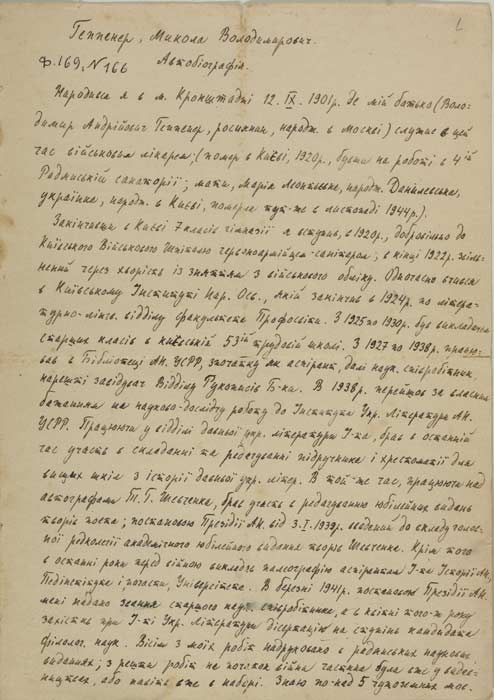 1
Геппенер, Микола Володимирович.
Ф.169, N166 Автобіографія.
Народився я в м. Кронштадті 12. IX. 1901р. де мій батько (Воло-
димир Андрійович Геппенер, росіянин, народж. в Москві) служив в цей
час військовим лікарем; (помер в Києві, 1920р., бувши на роботі в 4ій
Радянській санаторії; мати, Марія Леонтьевна, народж. Данилевська,
українка, народж. в Києві, померла тут-же в листопаді 1944р.).
Закінчивши в Києві 7 класів гімназії я вступив, в 1920р., добровільно до
Київського Військового Шпиталю червоноармійцем-санітаром; в кінці 1922р. звіль-
нений через хворість із зняттям з військового обліку. Одночасно вчився
в Київському Інституті Нар. Осв., який закінчив в 1924р. по літера-
турно-лінгв. відділу факультета Профосвіти. З 1925 по 1930р. був викладачем
старших класів в київській 53ій трудовій школі. З 1927 по 1938р. працю-
вав в Бібліотеці АН. УСРР, спочатку як аспірант, далі наук. співробітник,
нарешті завідувач Відділу Рукописів Б-ки. В 1938р. перейшов за власним
бажанням на науково-дослідчу роботу до Інституту Укр. Літератури АН.
УСРР. Працюючи у відділі давньої укр. літератури І-та, брав в останній
час участь в складанні та редагуванні підручника і хрестоматії для
вищих шкіл з історії давньої укр. літер. В той-же час, працюючи над
автографами Т. Г. Шевченка, брав участь в редагуванню ювілейних видань
творів поета; постановою Президії АН. від 3. I. 1939р. введений до складу голов-
ної редколегії академічного ювілейного видання творів Шевченка. Крім того
в останні роки перед війною викладав палеографію аспірантам І-та Історії АН.,
Педінститута і, почасти, Університета. В березні 1941р. постановою Президії АН.
мені надано звання старшого наук. співробітника, а в квітні того-ж року
захистив при І-ті Укр. Літератури дісертацію на ступінь кандидата
філолог. наук. Вісім з моїх робіт надруковано в радянських наукових
виданнях; з решти робіт на початок війни частина була вже у видав-
ництвах, або навіть вже в наборі. Знаю по-над 5 чужоземних мов.